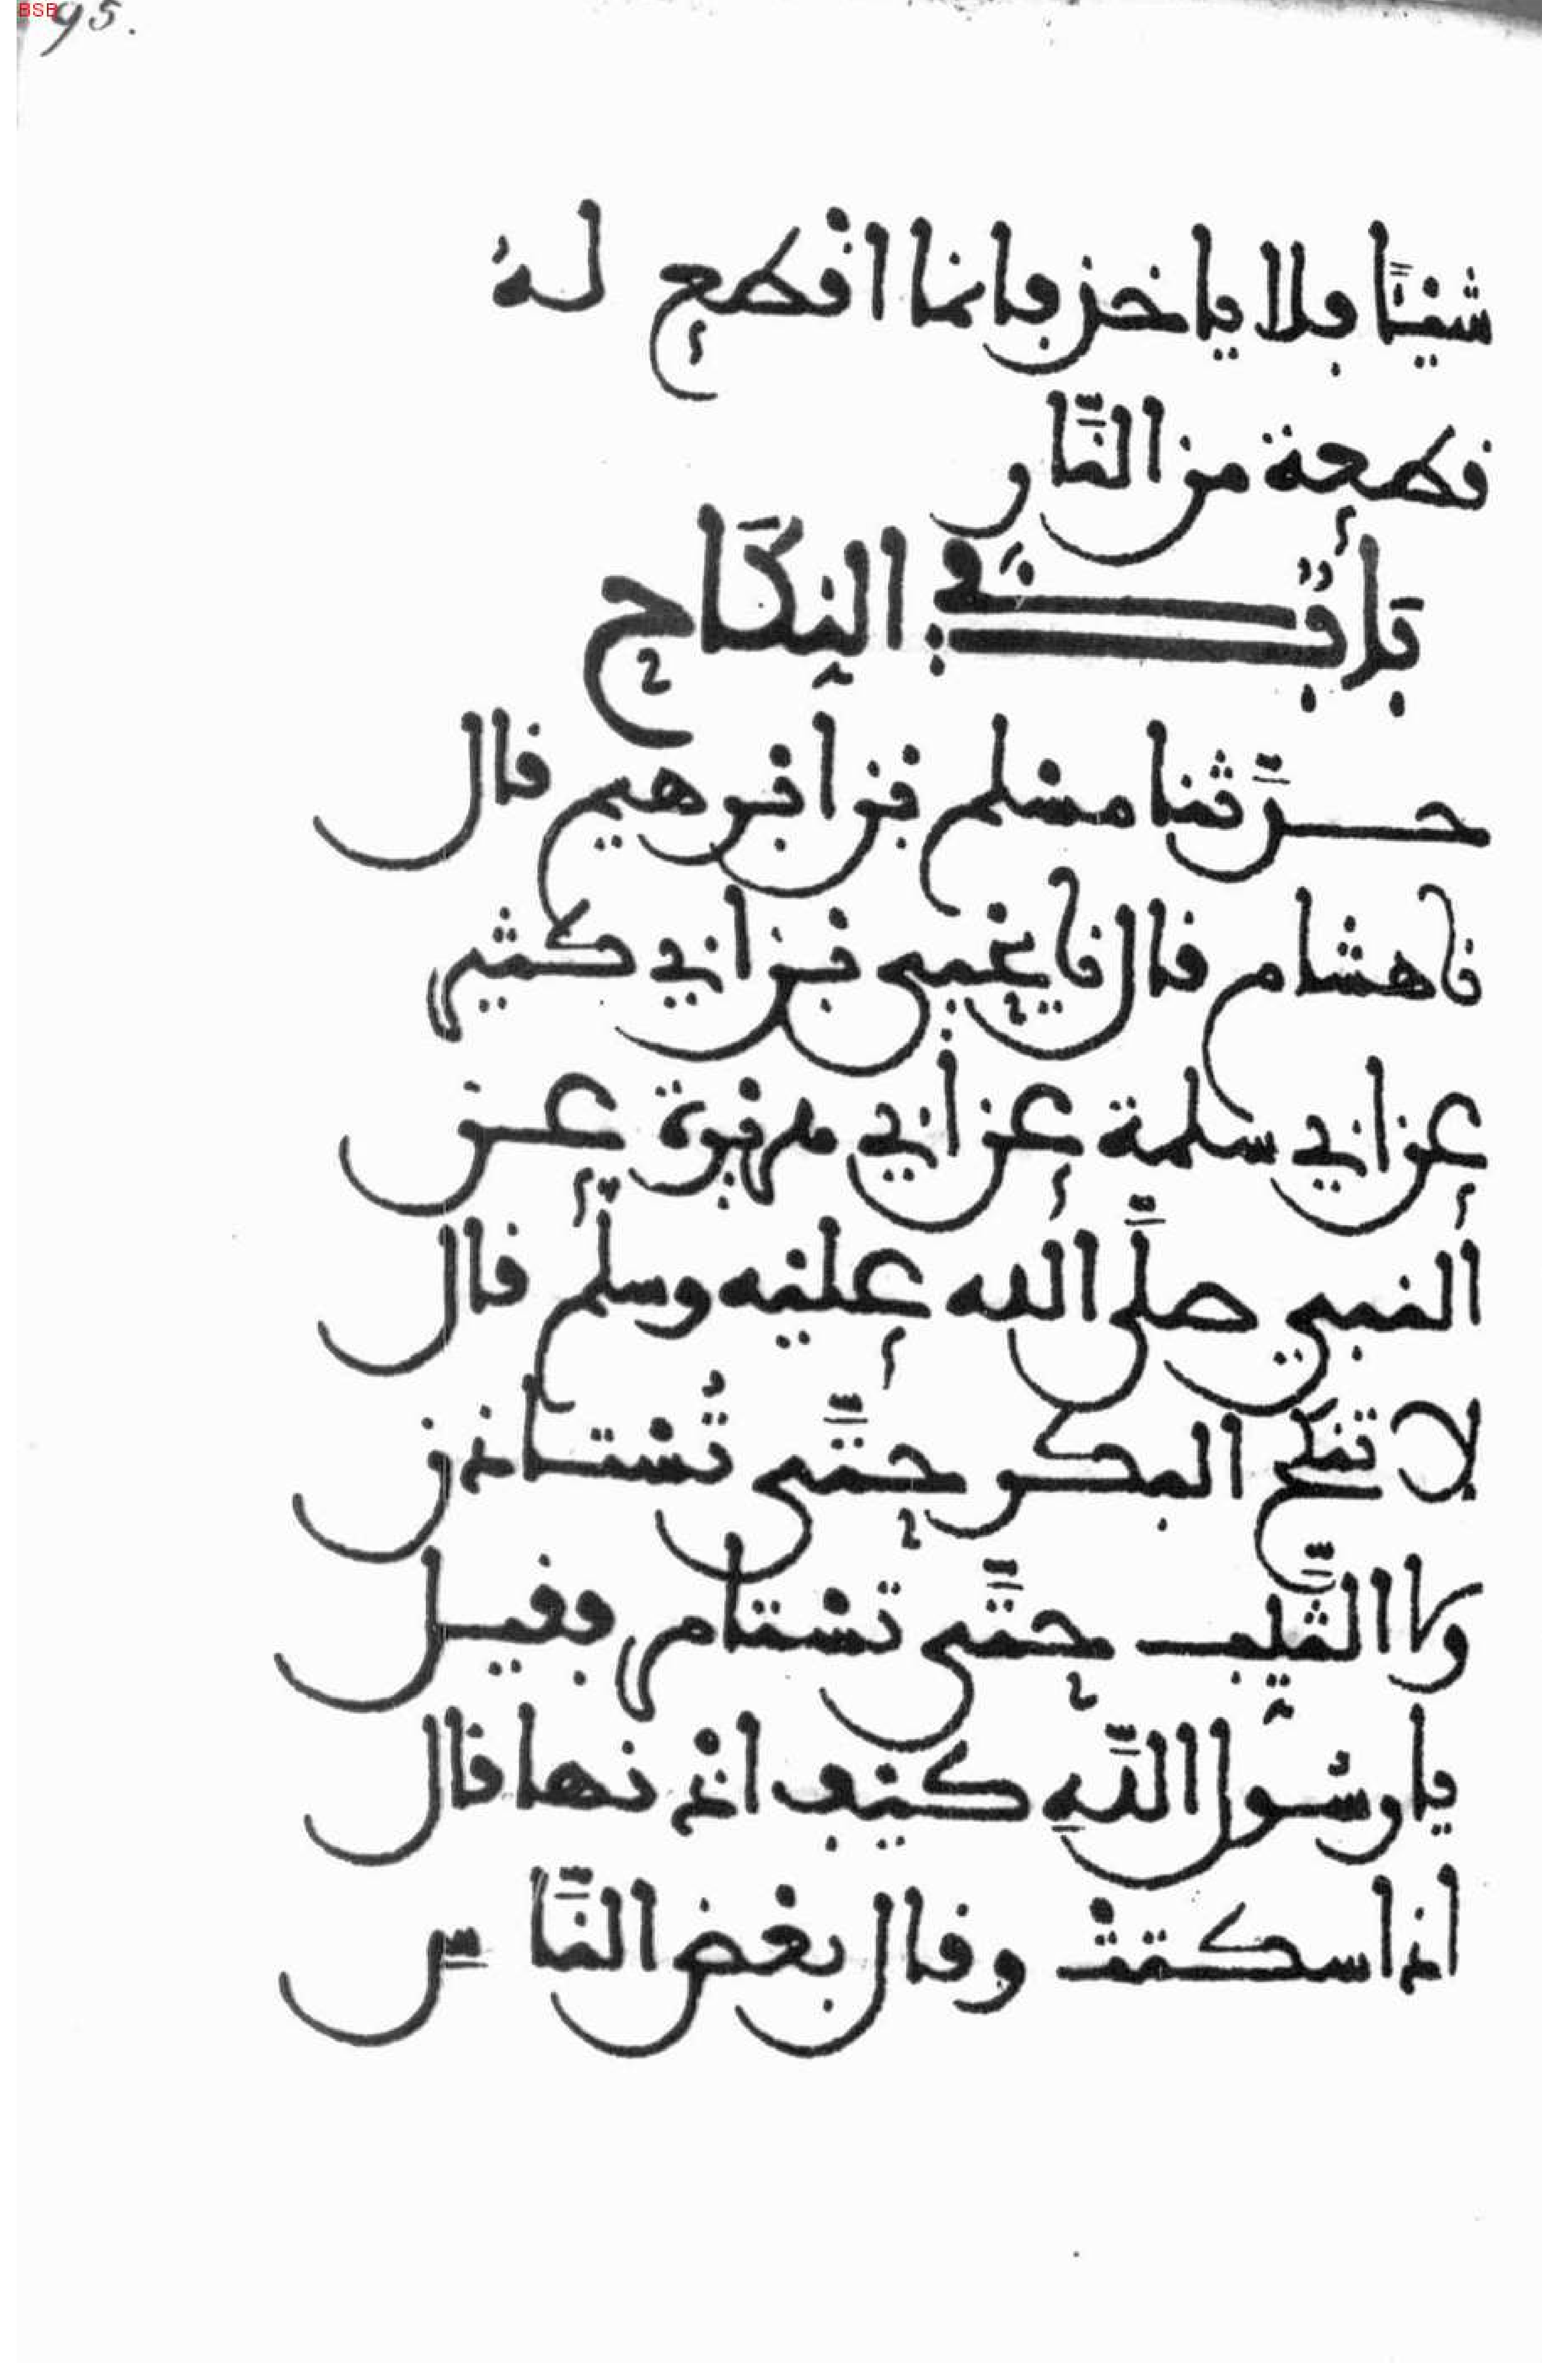 95.
شيئًا فلا ياخذ فانما اقْطع له
قطعة من النَّار
بَابٌ في النِكَاح
حدَّثنا مسْلم بْن ابْرهيم قال
نا هشام قال نا يحْيى بْن ابي كثير
عن ابي سلمة عن أبي هريْرة عن
ألنبي صلَّى ألله عليْه وسلم قال
لا تنكح البكر حتَّى تُسْتاذن
ولا الثَّيِّب حتَّى تسْتامر فقيل
يا رسُول اللَّهِ كيْف اذْنها قال
اذا سكتتْ وقال بعْض النَّاس